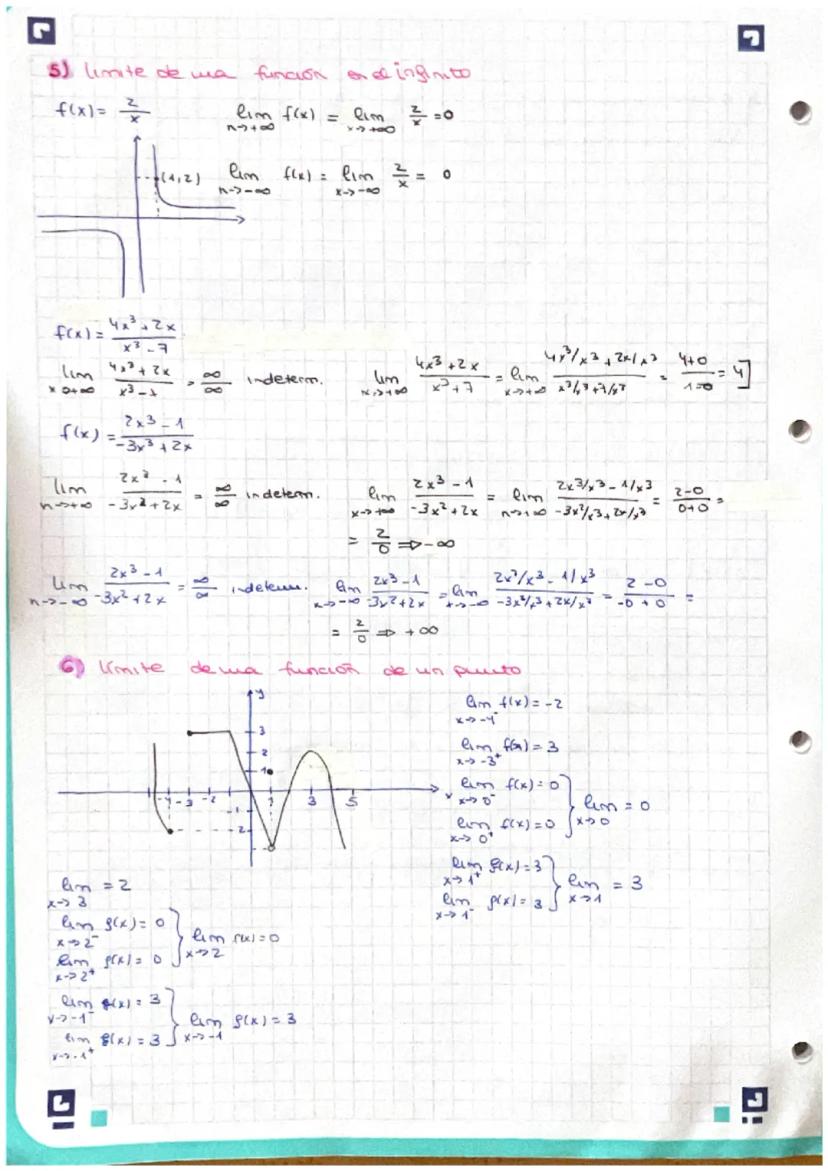 5) Límite de una función en el infinito
f(x) = 2/x    lim n→+∞ f(x) = lim x→+∞ 2/x = 0
(1,2)    lim n→-∞ f(x) = lim x→-∞ 2/x = 0
f(x) = (4x³ + 2x)/(x³ - 7)
lim x→+∞ (4x³ + 2x)/(x³ - 7) = ∞/∞ indeterm.    lim x→+∞ (4x³ + 2x)/(x³ + 7) = lim x→+∞ (4x³/x³ + 2x/x³)/(x³/x³ + 7/x³) = (4+0)/(1=0) = 4]
f(x) = (2x³ - 1)/(-3x³ + 2x)
lim n→+∞ (2x³ - 1)/(-3x² + 2x) = ∞/∞ indeterm.    lim x→+∞ (2x³ - 1)/(-3x² + 2x) = lim n→+∞ (2x³/x³ - 1/x³)/(-3x²/x³ + 2x/x³) = (2-0)/(0+0) =
= 2/0 ⇒ -∞
lim n→-∞ (2x³ - 1)/(-3x² + 2x) = ∞/∞ indeterm.    lim x→-∞ (2x³ - 1)/(-3x² + 2x) = lim x→-∞ (2x³/x³ - 1/x³)/(-3x²/x³ + 2x/x³) = (2 - 0)/(-0 + 0) =
= 2/0 ⇒ +∞
6) Límite de una función de un punto
y
3
2
1
-4 -3 -2 1 3 5 x
-1
-2
lim x→-4⁻ f(x) = -2
lim x→-3⁺ f(x) = 3
lim x→0⁻ f(x) = 0
lim x→0⁺ f(x) = 0 } lim x→0 = 0
lim x→1⁺ f(x) = 3
lim x→1⁻ f(x) = 3 } lim x→1 = 3
lim x→3 = 2
lim x→2⁻ f(x) = 0
lim x→2⁺ f(x) = 0 } lim x→2 f(x) = 0
lim x→-1⁻ f(x) = 3
lim x→-1⁺ f(x) = 3 } lim x→-1 f(x) = 3